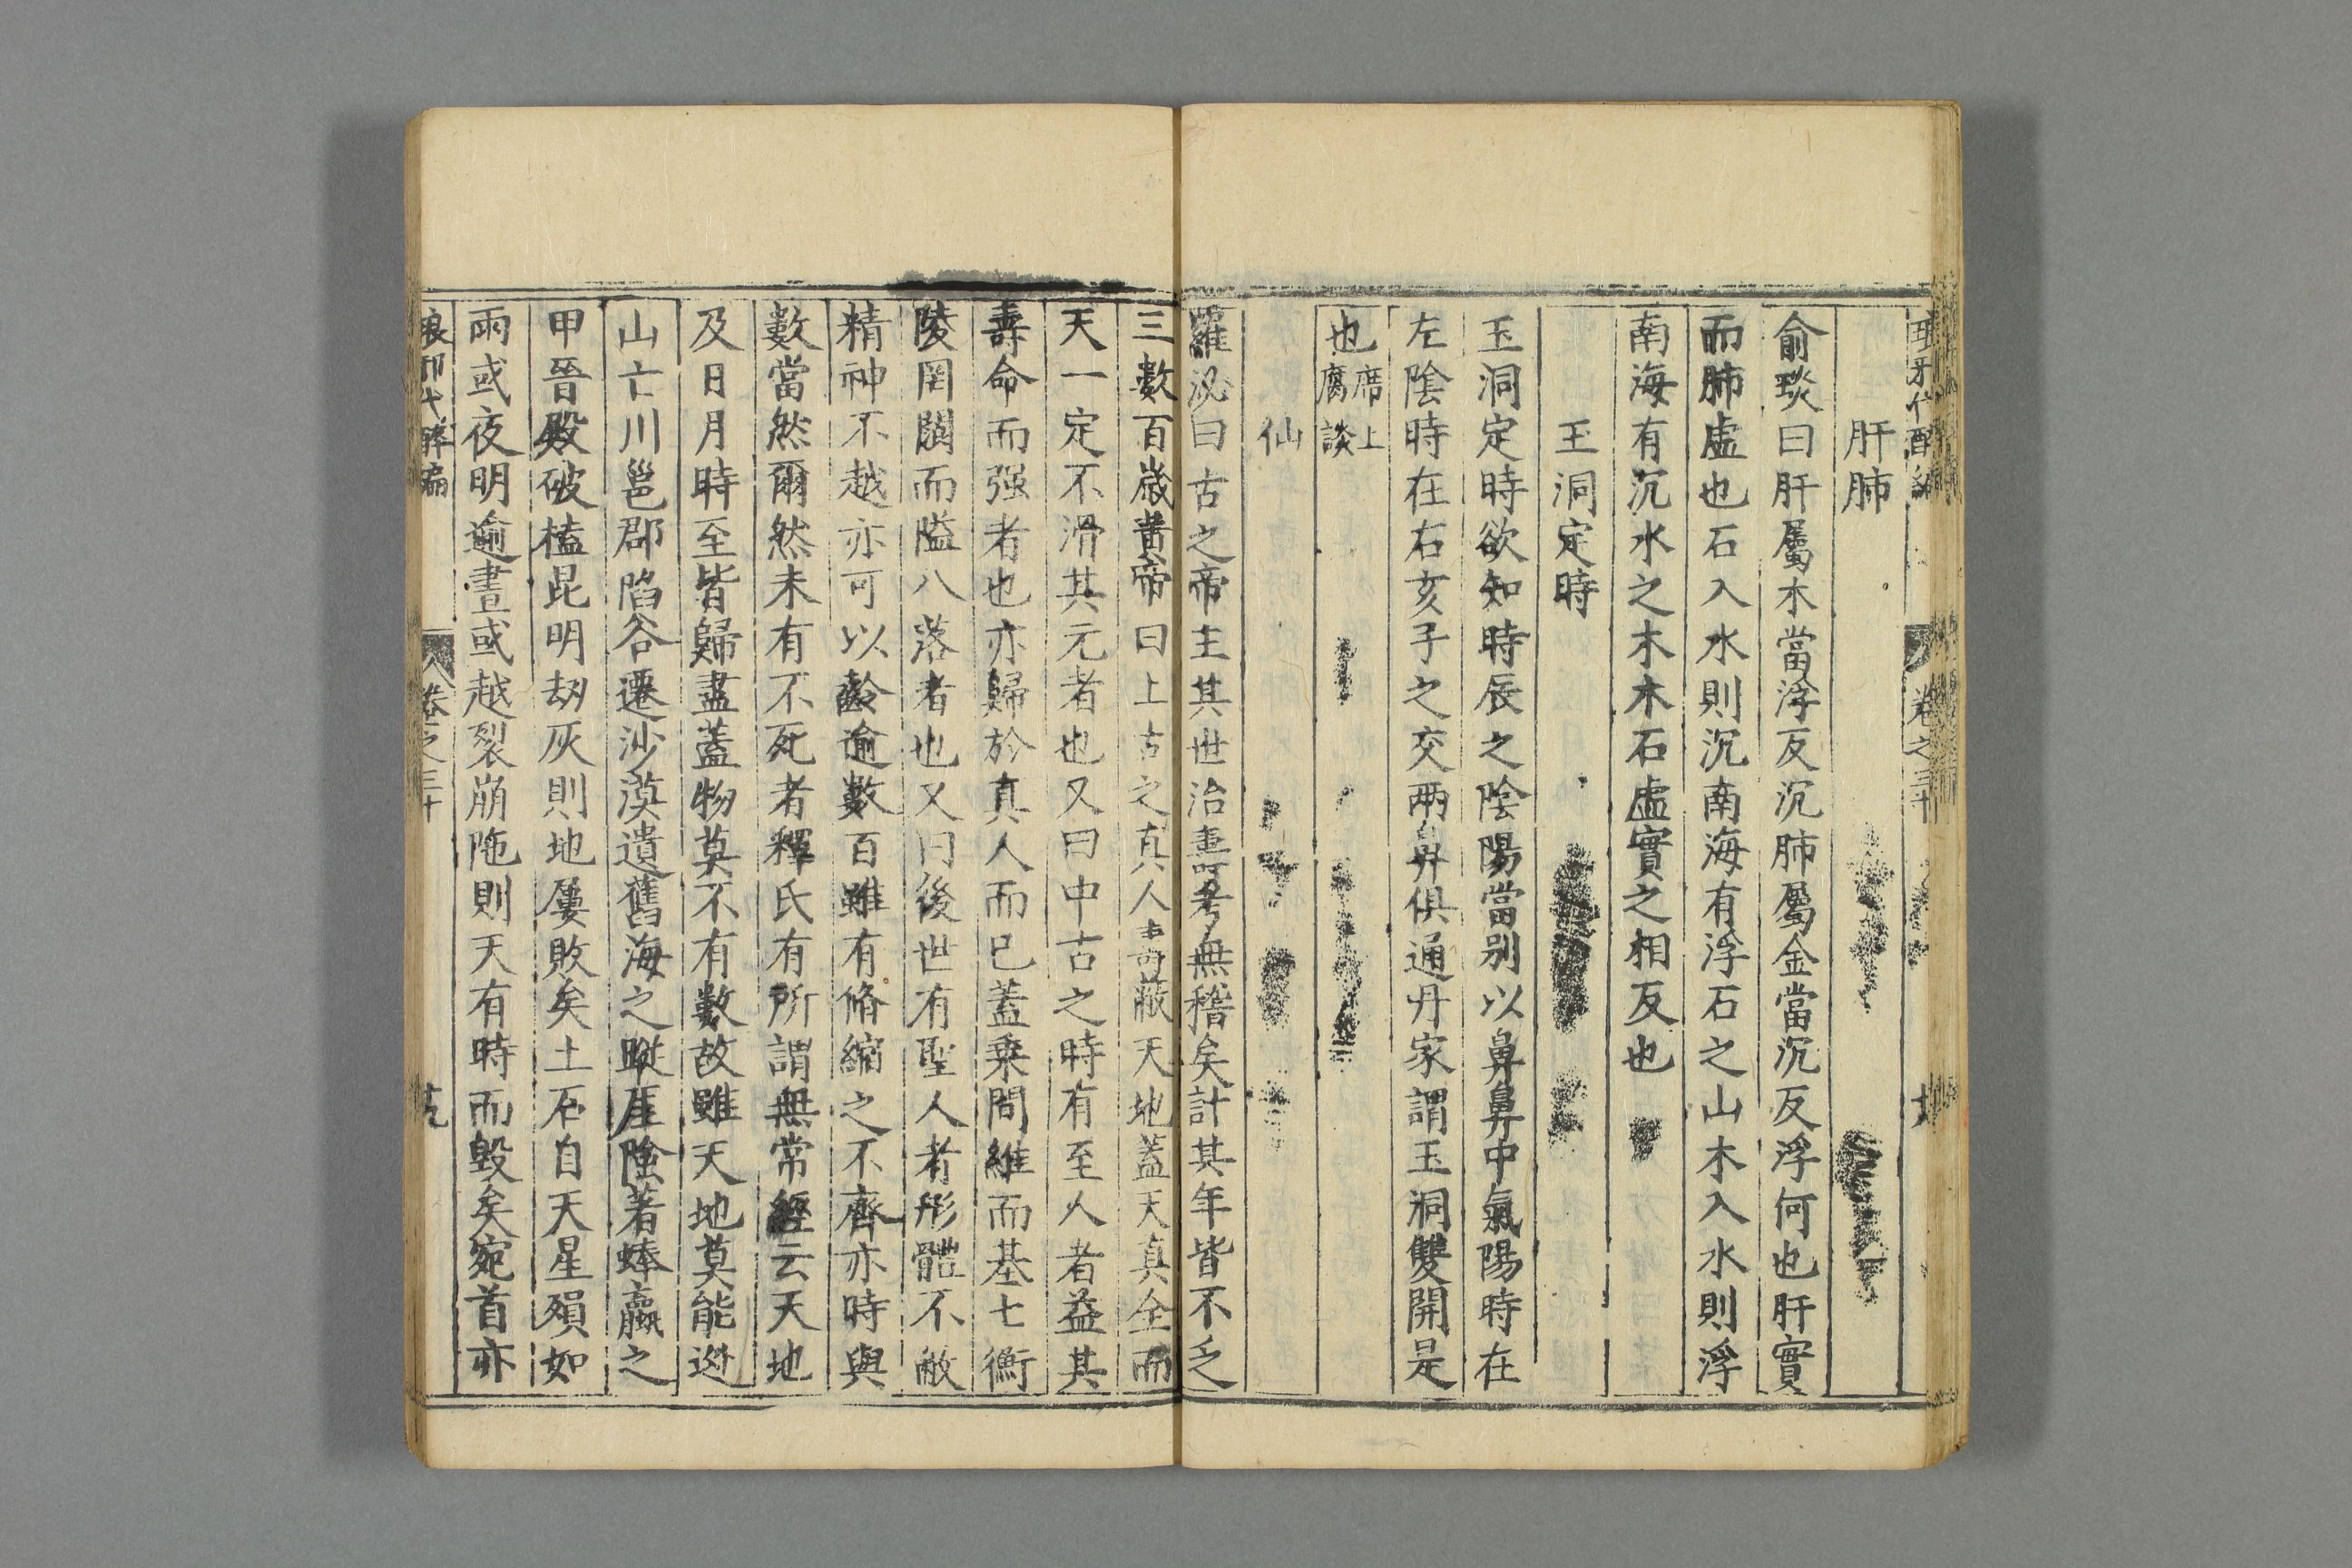 肝肺
俞琰曰肝屬木當浮反沉肺屬金當沉反浮何也肝實
而肺虛也石入水則沉南海有浮石之山木入水則浮
南海有沉水之木木石虛實之相反也
玉洞定時
玉洞定時欲知時辰之陰陽當别以鼻鼻中氣陽時在
左陰時在右亥子之交兩鼻俱通丹家謂玉洞雙開是
也席上腐談
仙
羅泌曰古之帝王其世治書考無稽矣計其年皆不乏
三數百歲黄帝曰上古之真人壽蔽天地蓋天真全而
天一定不滑其元者也又曰中古之時有至人者益其
壽命而强者也亦歸於真人而已蓋乗間維而基七衡
陵罔閬而隘八落者也又曰後世有聖人者形體不敝
精神不越亦可以齡逾數百雖有脩縮之不齊亦時與
數當然爾然未有不死者釋氏有所謂無常經云天地
及日月時至皆歸盡蓋物莫不有數故雖天地莫能逃
山亡川邕郡陷谷遷沙漠遺舊海之蹤崖險著蜯蠃之
甲晉殿破榼昆明刼灰則地屢敗矣土石自天星殞如
雨或夜明逾晝或越裂崩陁則天有時而毀矣宛首亦
琅邪代醉編
卷之三十